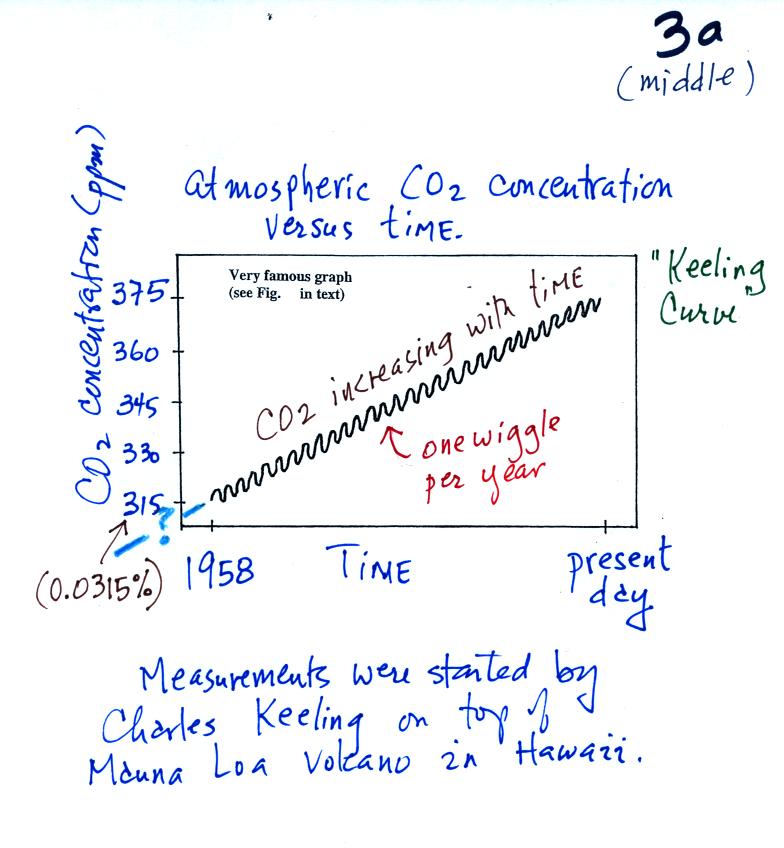 3a
(middle)
atmospheric CO2 concentration
versus time.
CO2 concentration (ppm)
Very famous graph
(see Fig.    in text)
"Keeling
Curve"
375
360
345
330
315
CO2 increasing with time
one wiggle
per year
?
(0.0315%)
1958
Time
present
day
Measurements were started by
Charles Keeling on top of
Mauna Loa Volcano in Hawaii.